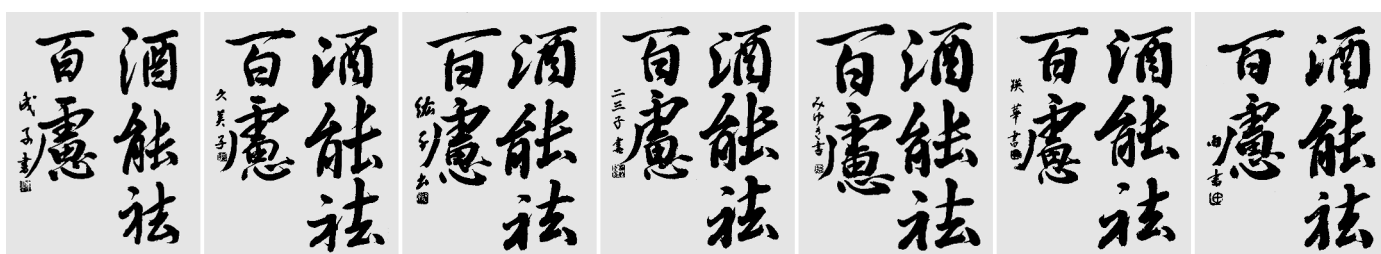 酒能祛
百慮
成子書
酒能祛
百慮
久美子
酒能祛
百慮
酒能祛
百慮
二三子書
酒能祛
百慮
みゆき書
酒能祛
百慮
瑛華書
酒能祛
百慮
雨書